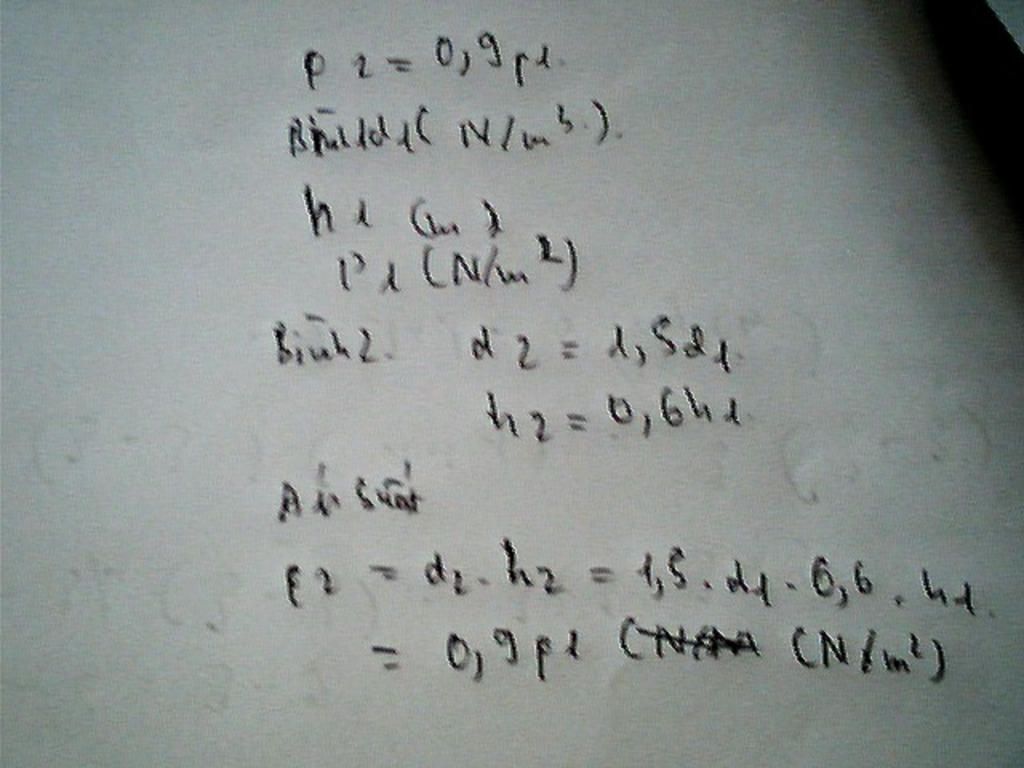 p2 = 0,9p1.
Bình1d1( N/m3.).
h1 (m)
P1 (N/m2)
Bình2. d2 = 1,5d1.
h2 = 0,6h1
Áp suất
p2 = d2.h2 = 1,5.d1.0,6.h1.
= 0,9p1 (N/m2)